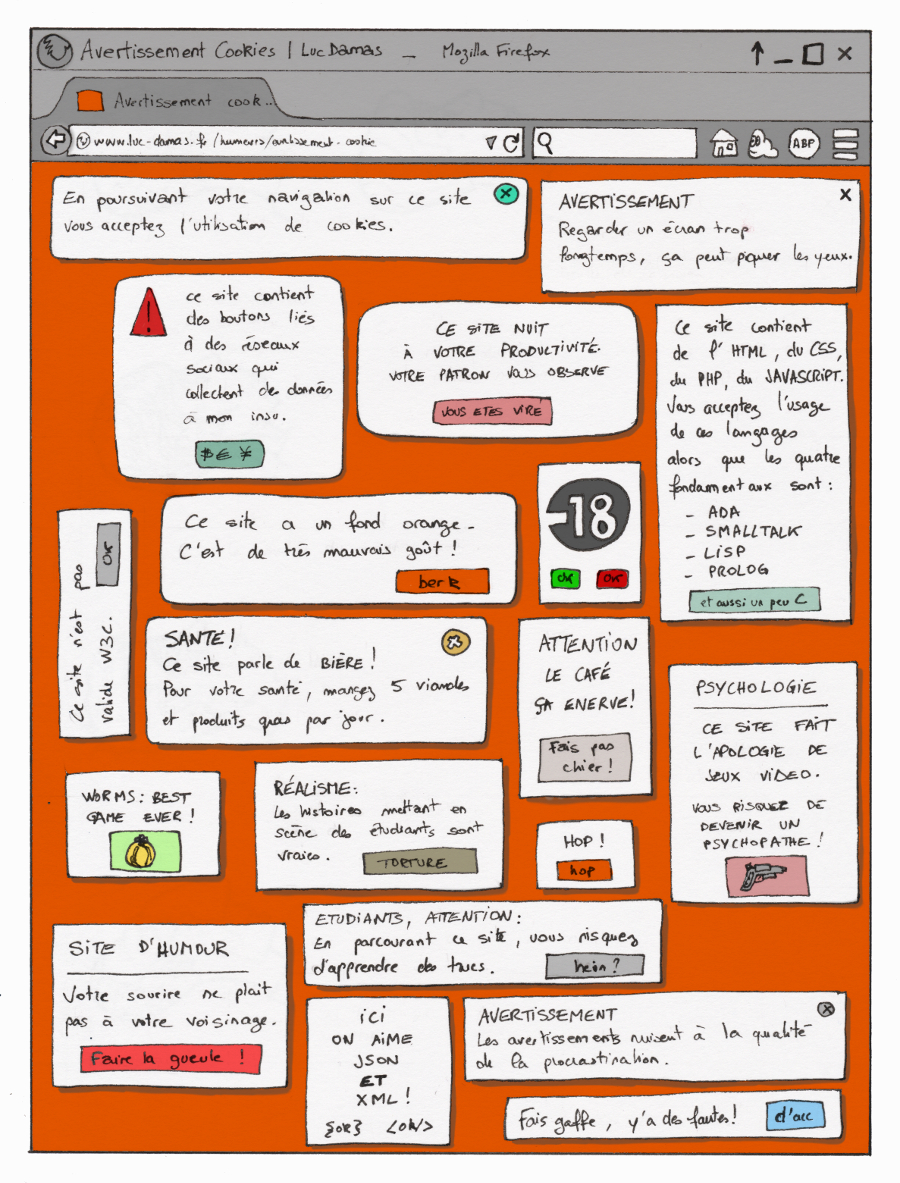 Avertissement Cookies | Luc Damas _ Mozilla Firefox
Avertissement cook..
www.luc-damas.fr/humeurs/avertissement-cookie
ABP
En poursuivant votre navigation sur ce site
vous acceptez l'utilisation de cookies.
AVERTISSEMENT
Regarder un écran trop
longtemps, ça peut piquer les yeux.
ce site contient
des boutons liés
à des réseaux
sociaux qui
collectent des données
à mon insu.
$ € ¥
CE SITE NUIT
À VOTRE PRODUCTIVITÉ.
VOTRE PATRON VOUS OBSERVE
VOUS ETES VIRÉ
Ce site contient
de l'HTML, du CSS,
du PHP, du JAVASCRIPT.
Vous acceptez l'usage
de ces langages
alors que les quatre
fondamentaux sont :
- ADA
- SMALLTALK
- LISP
- PROLOG
et aussi un peu C
Ce site a un fond orange.
C'est de très mauvais goût !
berk
-18
OK OK
Ce site n'est pas
valide W3C.
OK
SANTÉ !
Ce site parle de BIÈRE !
Pour votre santé, mangez 5 viandes
et produits gras par jour.
ATTENTION
LE CAFÉ
ÇA ENERVE !
Fais pas
chier !
PSYCHOLOGIE
CE SITE FAIT
L'APOLOGIE DE
JEUX VIDEO.
VOUS RISQUEZ DE
DEVENIR UN
PSYCHOPATHE !
WORMS : BEST
GAME EVER !
RÉALISME :
Les histoires mettant en
scène des étudiants sont
vraies.
TORTURE
HOP !
hop
ETUDIANTS, ATTENTION :
En parcourant ce site, vous risquez
d'apprendre des trucs.
hein ?
SITE D'HUMOUR
Votre sourire ne plait
pas à votre voisinage.
Faire la gueule !
ICI
ON AIME
JSON
ET
XML !
{OK} <OK/>
AVERTISSEMENT
Les avertissements nuisent à la qualité
de la procrastination.
Fais gaffe, y'a des fautes !
d'acc